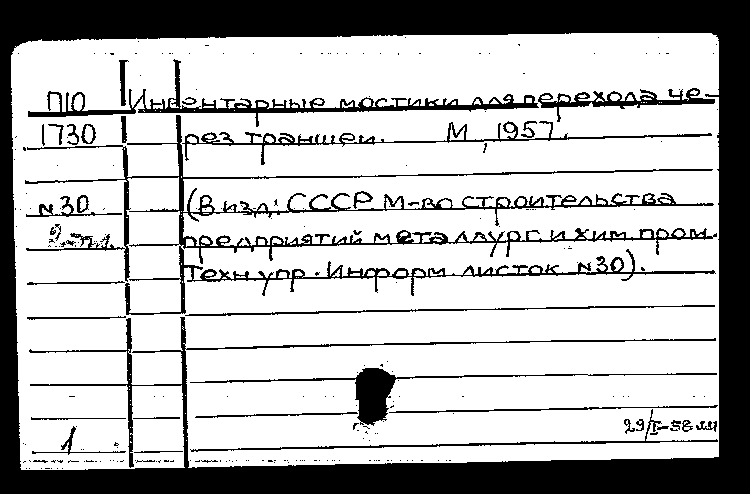 П10 Инвентарные мостики для перехода че-
1730 рез траншеи. М., 1957.
№30. (В изд: СССР М-во строительства
предприятий металлург. и хим. пром.
Техн. упр. Информ. листок №30).
1
29/I-58